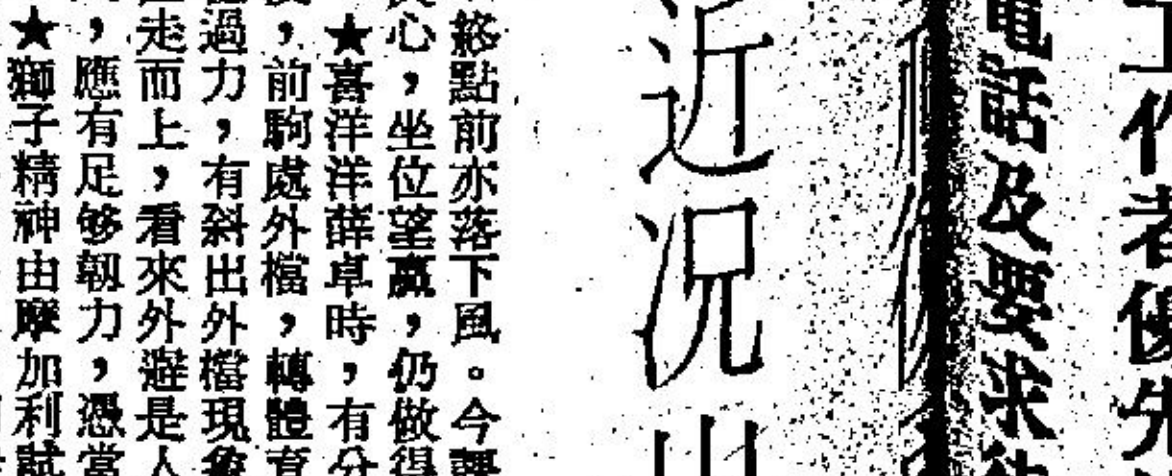 工作者優先
電話及要求待
近況
終點前亦落下風。今課
心，坐位望贏，仍做得
★喜洋洋薛卓時，有分
，前駒處外檔，轉體育
過力，有斜出外檔現象
走而上，看來外避是人
，應有足够韌力，憑當
★獅子精神由摩加利試